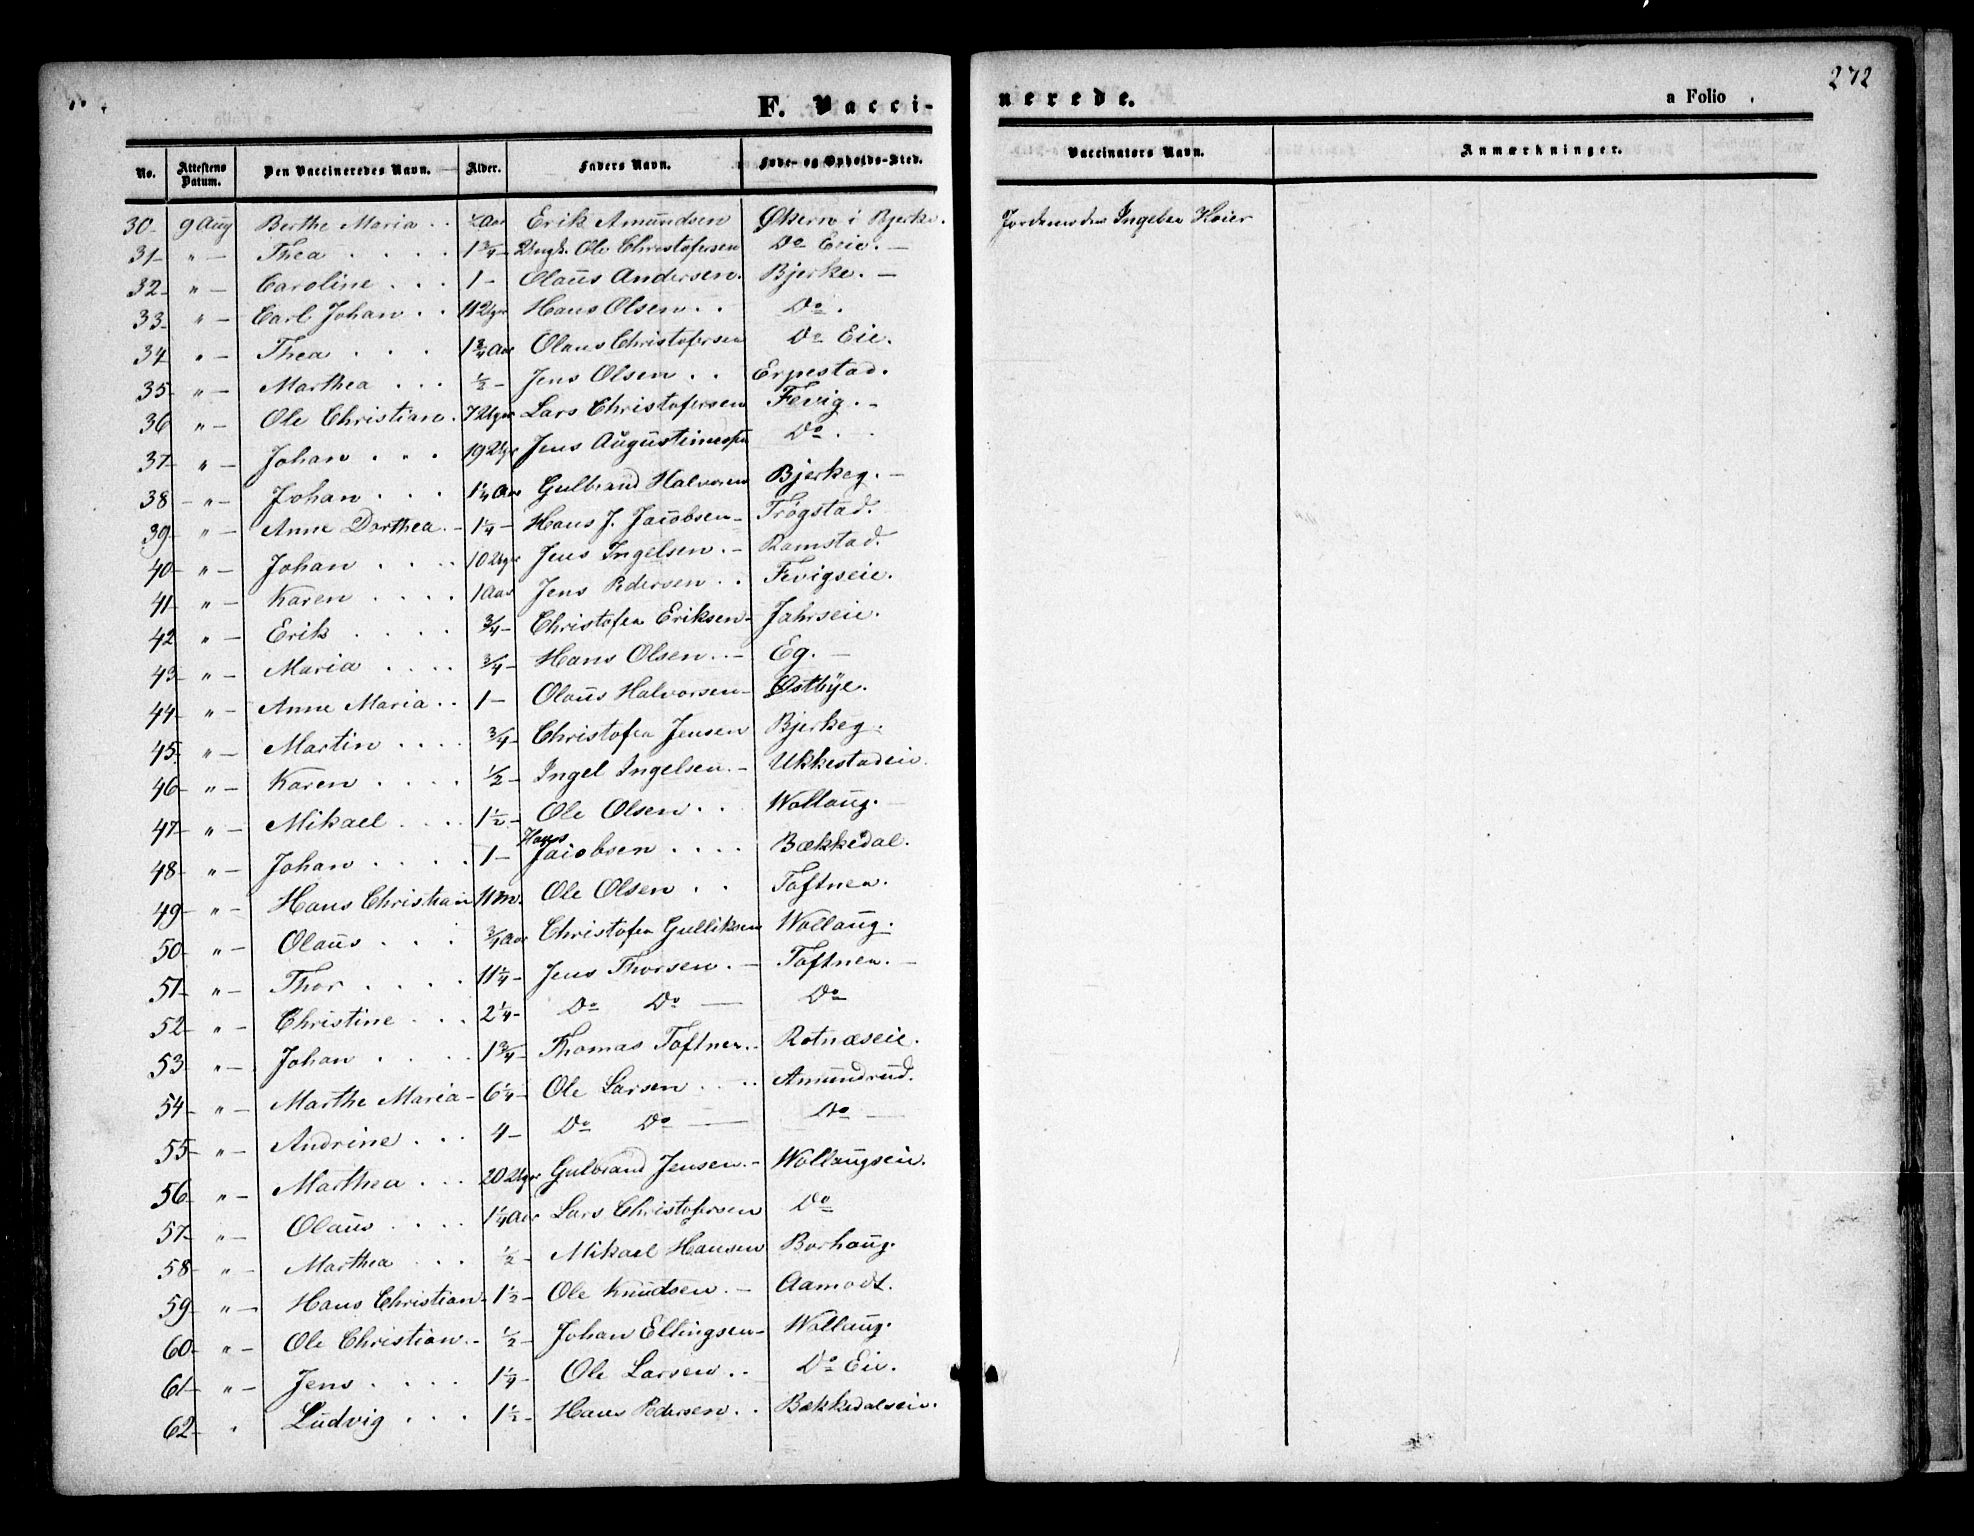 F. Vaccinerede.
a Folio
272
No. Attestens Datum. Den Vaccineredes Navn. Alder. Faders Navn. Føde- og Opholds-Sted. Vaccinators Navn. Anmærkninger.
30- 9 Aug Berthe Maria . . Aar Erik Amundsen Økern i Bjerke. Jordemoder Ingebor Høier
31- " - Thea . . . . 1 3/4 - Ungk. Ole Christofersen Do Eie. -
32- " - Caroline . . . 1 - Olaus Andersen. Bjerke. -
33- " - Carl Johan . . 11 Uger Hans Olsen . . Do .
34 " - Thea . . . 1 3/4 Aar Olaus Christofersen Do Eie.
35- " - Marthea . . . 1/2 - Jens Olsen . . Erpestad.
36 " - Ole Christian . 7 Uger Lars Christofersen Fevig. -
37- " - Johan . . . 19 Uger Jens Augustinessen Do . .
38- " - Johan . . . 1 1/4 Aar Gulbrand Halvorsen Bjerkeg. -
39- " - Anne Dorthea. - 1 1/4 - Hans J. Jacobsen - Trøgstad.
40- " - Johan . . . . 10 Uger Jens Ingelsen. - Ramstad.
41- " - Karen . . . . 1 Aar Jens Pedersen . . Fevigseie.
42 " - Erik . . . . 3/4 - Christofer Eriksen - Jahrseie.
43- " - Maria . . . . 3/4 - Hans Olsen . . - Eg. -
44- " - Anne Maria . . 1 - Olaus Halvorsen - Østbye.
45- " - Martin . . . . 3/4 - Christofer Jensen Bjerkeg.
46- " - Karen . . . . 1/2 - Ingel Ingelsen. - Ukkestadeie.
47- " - Mikael . . . . 1 1/2 - Ole Olsen . . Wollaug. -
48- " - Johan . . . . . 1 - Hans Jacobsen . . . . Bækkedal.
49- " - Hans Christian 11 M. Ole Olsen . . Toftner.
50- " - Olaus . . . 3/4 Aar Christofer Gulliksen Wollaug.
51- " - Thor . . . . 11 1/4 - Jens Thorsen. - Toftner. -
52- " - Christine . . . 2 1/4 - Do Do - Do
53 " - Johan . . . . 1 3/4 - Thomas Toftner . . Rotnæseie.
54- " - Marthe Maria - 6 1/4 - Ole Larsen . . . . Amundrud.
55- " - Andrine . . . 4 - Do Do - Do -
56- " - Marthea . . . 20 Uger Gulbrand Jensen. - Wollaugseie.
57- " - Olaus . . . . 1 1/4 Aar Lars Christofersen Do
58- " - Marthea . . . 1/2 - Mikael Hansen Borhaug.
59- " - Hans Christian - 1 1/2 - Ole Knudsen. - Aamodt.
60- " - Ole Christian. - 1/2 - Johan Ellingsen - Wollaug.
61- " - Jens . . . . 1 1/4 - Ole Larsen . . Do Eie.
62- " Ludvig . . . 1 1/2 - Hans Pedersen . . Bækkedalseie.